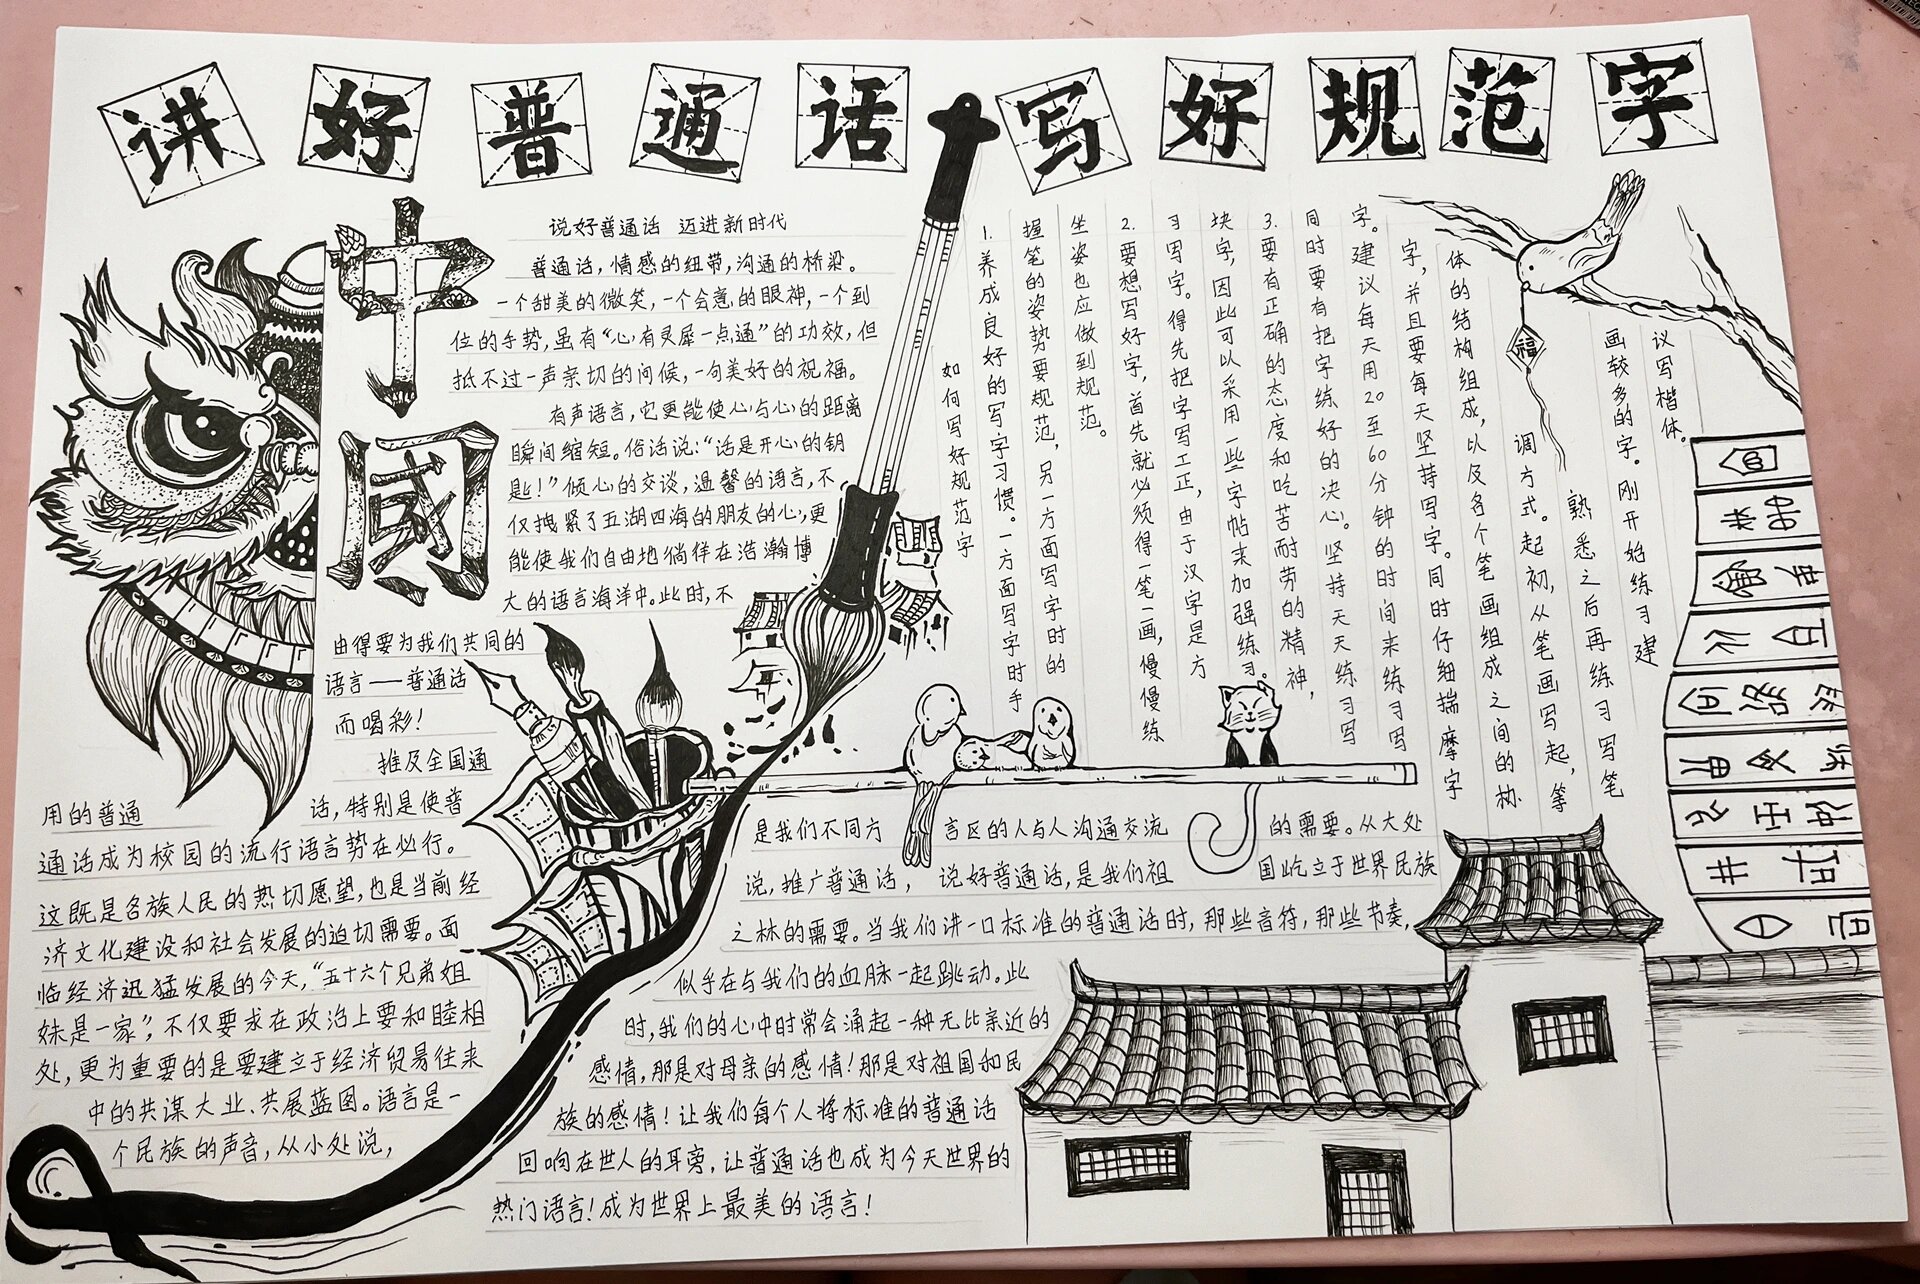 讲好普通话写好规范字
中国
说好普通话 迈进新时代
普通话,情感的纽带,沟通的桥梁。
一个甜美的微笑,一个会意的眼神,一个到
位的手势,虽有“心有灵犀一点通”的功效,但
抵不过一声亲切的问候,一句美好的祝福。
有声语言,它更能使心与心的距离
瞬间缩短。俗话说:“话是开心的钥
匙!”倾心的交谈,温馨的语言,不
仅拽紧了五湖四海的朋友的心,更
能使我们自由地徜徉在浩瀚博
大的语言海洋中。此时,不
由得要为我们共同的
语言——普通话
而喝彩!
推及全国通
用的普通话,特别是使普
通话成为校园的流行语言势在必行。
这既是各族人民的热切愿望,也是当前经
济文化建设和社会发展的迫切需要。面
临经济迅猛发展的今天,“五十六个兄弟姐
妹是一家”,不仅要求在政治上要和睦相
处,更为重要的是要建立于经济贸易往来
中的共谋大业、共展蓝图。语言是一
个民族的声音,从小处说,
是我们不同方言区的人与人沟通交流的需要。从大处
说,推广普通话,说好普通话,是我们祖国屹立于世界民族
之林的需要。当我们讲一口标准的普通话时,那些音符,那些节奏,
似乎在与我们的血脉一起跳动。此
时,我们的心中时常会涌起一种无比亲近的
感情,那是对母亲的感情!那是对祖国和民
族的感情!让我们每个人将标准的普通话
回响在世人的耳旁,让普通话也成为今天世界的
热门语言!成为世界上最美的语言!
如何写好规范字
1.养成良好的写字习惯。一方面写字时手
握笔的姿势要规范,另一方面写字时的
坐姿也应做到规范。
2.要想写好字,首先就必须得一笔一画,慢慢练
习写字。得先把字写工正,由于汉字是方
块字,因此可以采用一些字帖来加强练习。
3.要有正确的态度和吃苦耐劳的精神,
同时要有把字练好的决心。坚持天天练习写
字。建议每天用20至60分钟的时间来练习写
字,并且要每天坚持写字。同时仔细揣摩字
体的结构组成,以及各个笔画组成之间的协
调方式。起初,从笔画写起,等
熟悉之后再练习写笔
画较多的字。刚开始练习建
议写楷体。
福